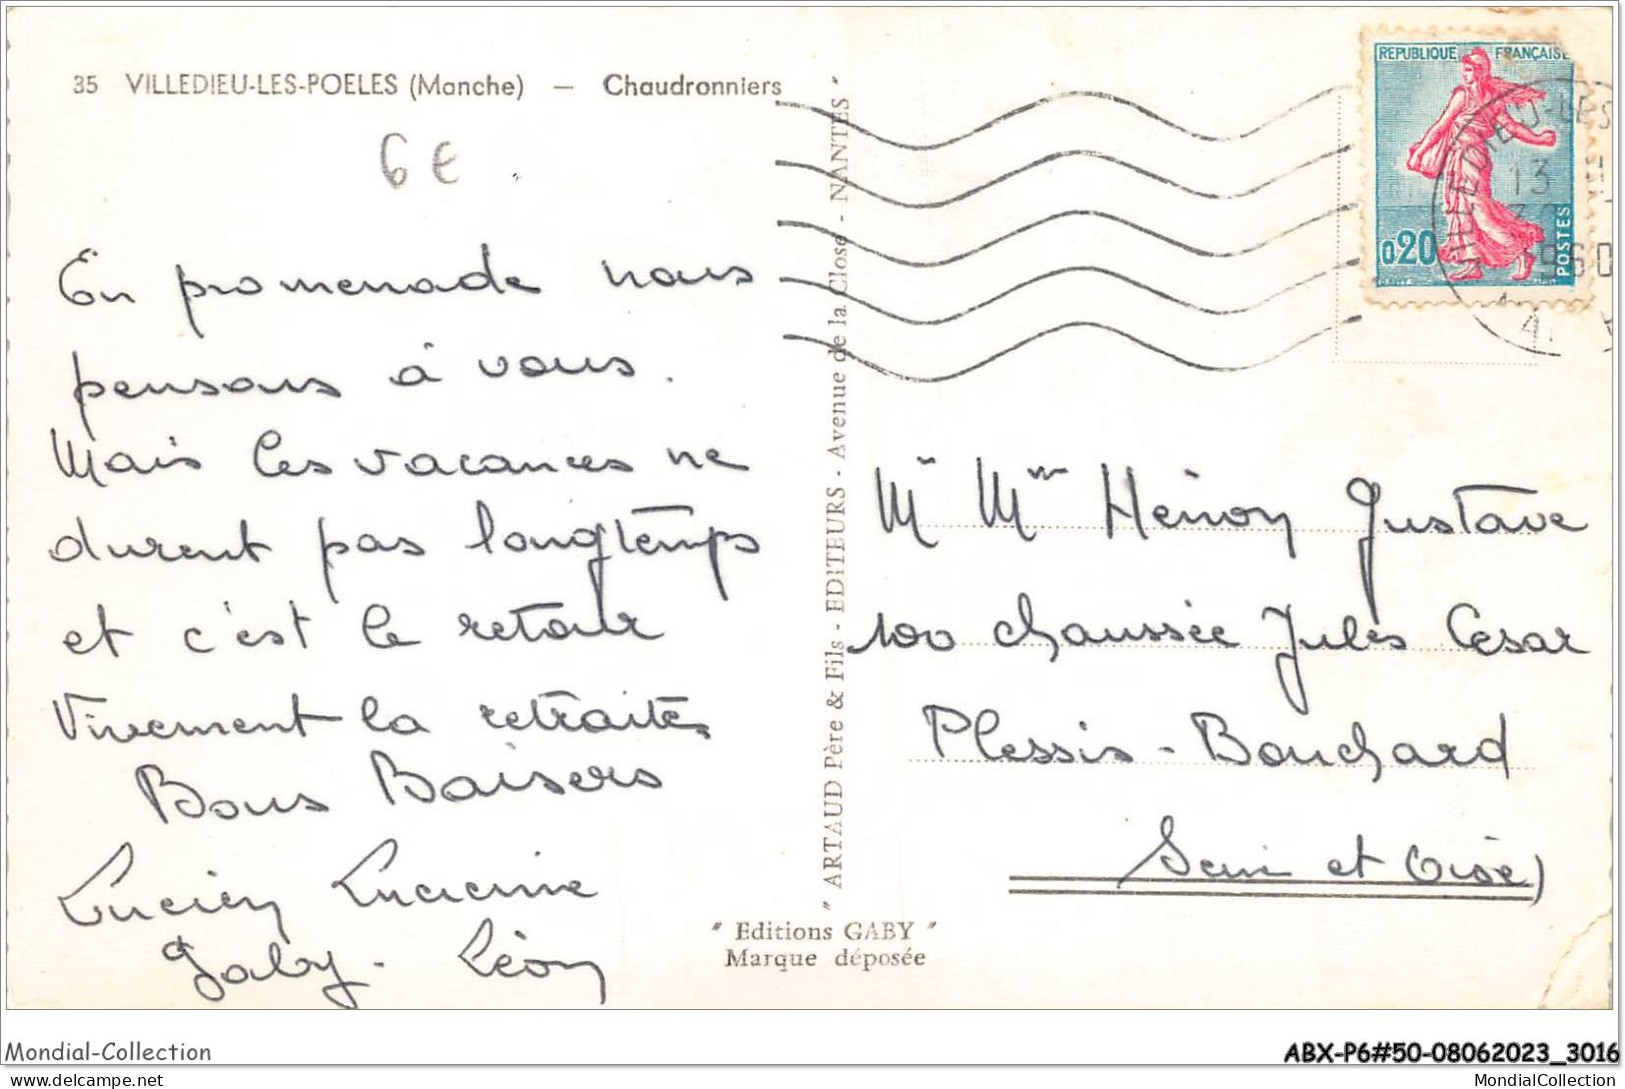 35 VILLEDIEU-LES-POELES (Manche) — Chaudronniers
6 €
En promenade nous
pensons à vous.
Mais les vacances ne
durent pas longtemps
et c'est le retour
Vivement la retraite.
Bons Baisers
Lucien Lucienne
Gaby. Léon
" ARTAUD Père & Fils - EDITEURS - Avenue de la Close - NANTES "
" Editions GABY "
Marque déposée
REPUBLIQUE FRANÇAISE
0,20
POSTES
VILLEDIEU-LES
13 H
30
1960
Mr Mme Héroy Gustave
100 chaussée Jules Cesar
Plessis-Bouchard
Seine et Oise)
Mondial-Collection
ABX-P6#50-08062023_3016
delcampe.net
MondialCollection